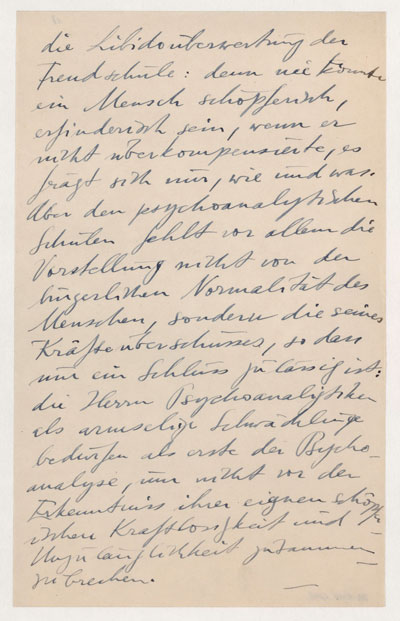 die Libidoüberwertung der
Freudschule: denn nie könnte
ein Mensch schöpferisch,
erfinderisch sein, wenn er
nicht überkompensierte, es
frägt sich nur, wie und was.
Aber den psychoanalytischen
Schulen fehlt vor allem die
Vorstellung nicht von der
bürgerlichen Normalität des
Menschen, sondern die seines
Kräfteüberschusses, so dass
nur ein Schluss zulässig ist:
die Herrn Psychoanalytiker
als armselige Schwächlinge
bedürfen als erste der Psycho-
analyse, um nicht vor der
Erkenntniss ihrer eignen schöpfe-
rischen Kraftlosigkeit und
Unzulänglichkeit zusammen-
zubrechen.